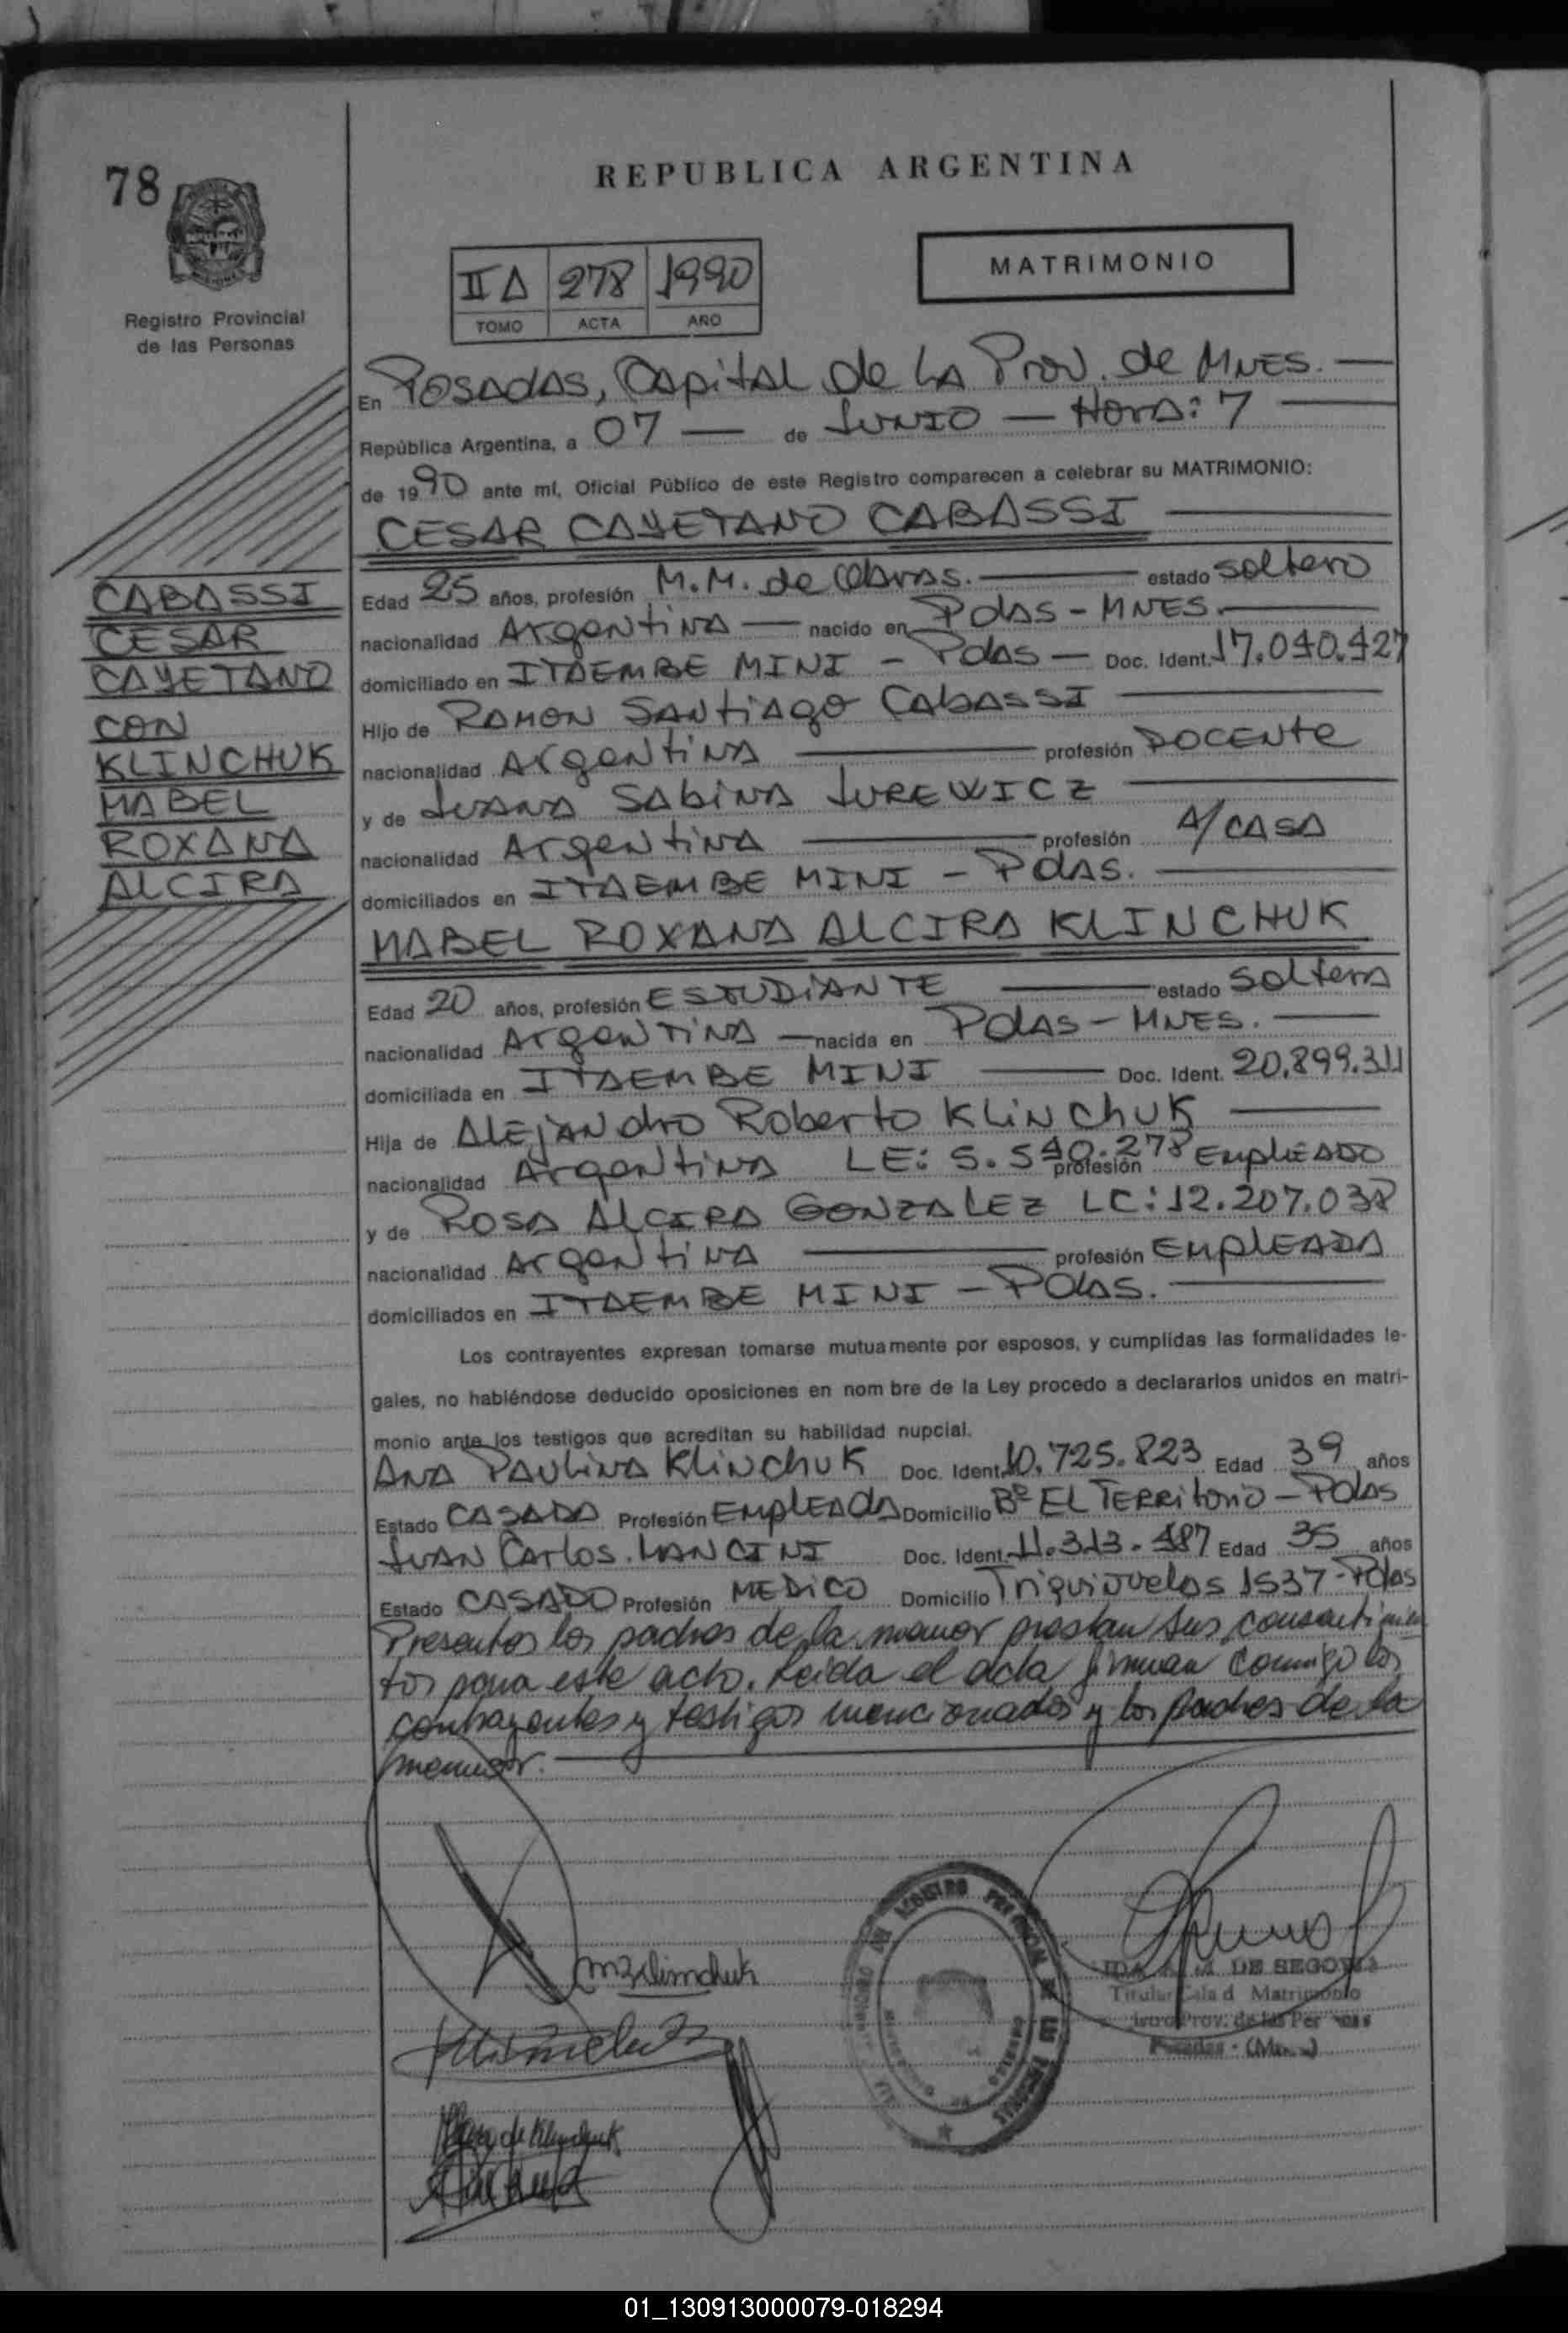 78
REPUBLICA ARGENTINA
MATRIMONIO
IIA 278 1990
TOMO ACTA AÑO
Registro Provincial
de las Personas
En Posadas, Capital de la Prov. de Mnes.
República Argentina, a 07 de Junio Hora: 7
de 1990 ante mí, Oficial Público de este Registro comparecen a celebrar su MATRIMONIO:
CESAR CAYETANO CABASSI
CABASSI
CESAR
CAYETANO
CON
KLINCHUK
MABEL
ROXANA
ALCIRA
Edad 25 años, profesión M.M. de Obras. estado soltero
nacionalidad Argentina nacido en Pdas - MNES.
domiciliado en ITAEMBE MINI - Pdas Doc. Ident. 17.040.427
Hijo de RAMON SANTIAGO CABASSI
nacionalidad Argentina profesión DOCENTE
y de JUANA SABINA JUREWICZ
nacionalidad Argentina profesión A/CASA
domiciliados en ITAEMBE MINI - Pdas.
MABEL ROXANA ALCIRA KLINCHUK
Edad 20 años, profesión ESTUDIANTE estado soltera
nacionalidad Argentina nacida en Pdas - MNES.
domiciliada en ITAEMBE MINI Doc. Ident. 20.899.311
Hija de Alejandro Roberto Klinchuk
nacionalidad Argentina LE: 5.540.278 profesión Empleado
y de ROSA ALCIRA GONZALEZ LC: 12.207.038
nacionalidad Argentina profesión Empleada
domiciliados en ITAEMBE MINI - Pdas.
Los contrayentes expresan tomarse mutuamente por esposos, y cumplidas las formalidades le-
gales, no habiéndose deducido oposiciones en nom bre de la Ley procedo a declararlos unidos en matri-
monio ante los testigos que acreditan su habilidad nupcial.
ANA PAULINA KLINCHUK Doc. Ident. 10.725.823 Edad 39 años
Estado CASADA Profesión EMPLEADA Domicilio Bº EL TERRITORIO - Pdas
JUAN CARLOS MANCINI Doc. Ident. 11.313.487 Edad 35 años
Estado CASADO Profesión MEDICO Domicilio Triquiñuelas 1537 - Pdas
Presentes los padres de la menor prestan sus consentimien
tos para este acto. Leida el acta firman conmigo los
contrayentes y testigos mencionados y los padres de la
menor.
DE SEGOVIA
Titular Sala d Matrimonio
Prov. de las Per
Posadas - (Mnes)
01_130913000079-018294